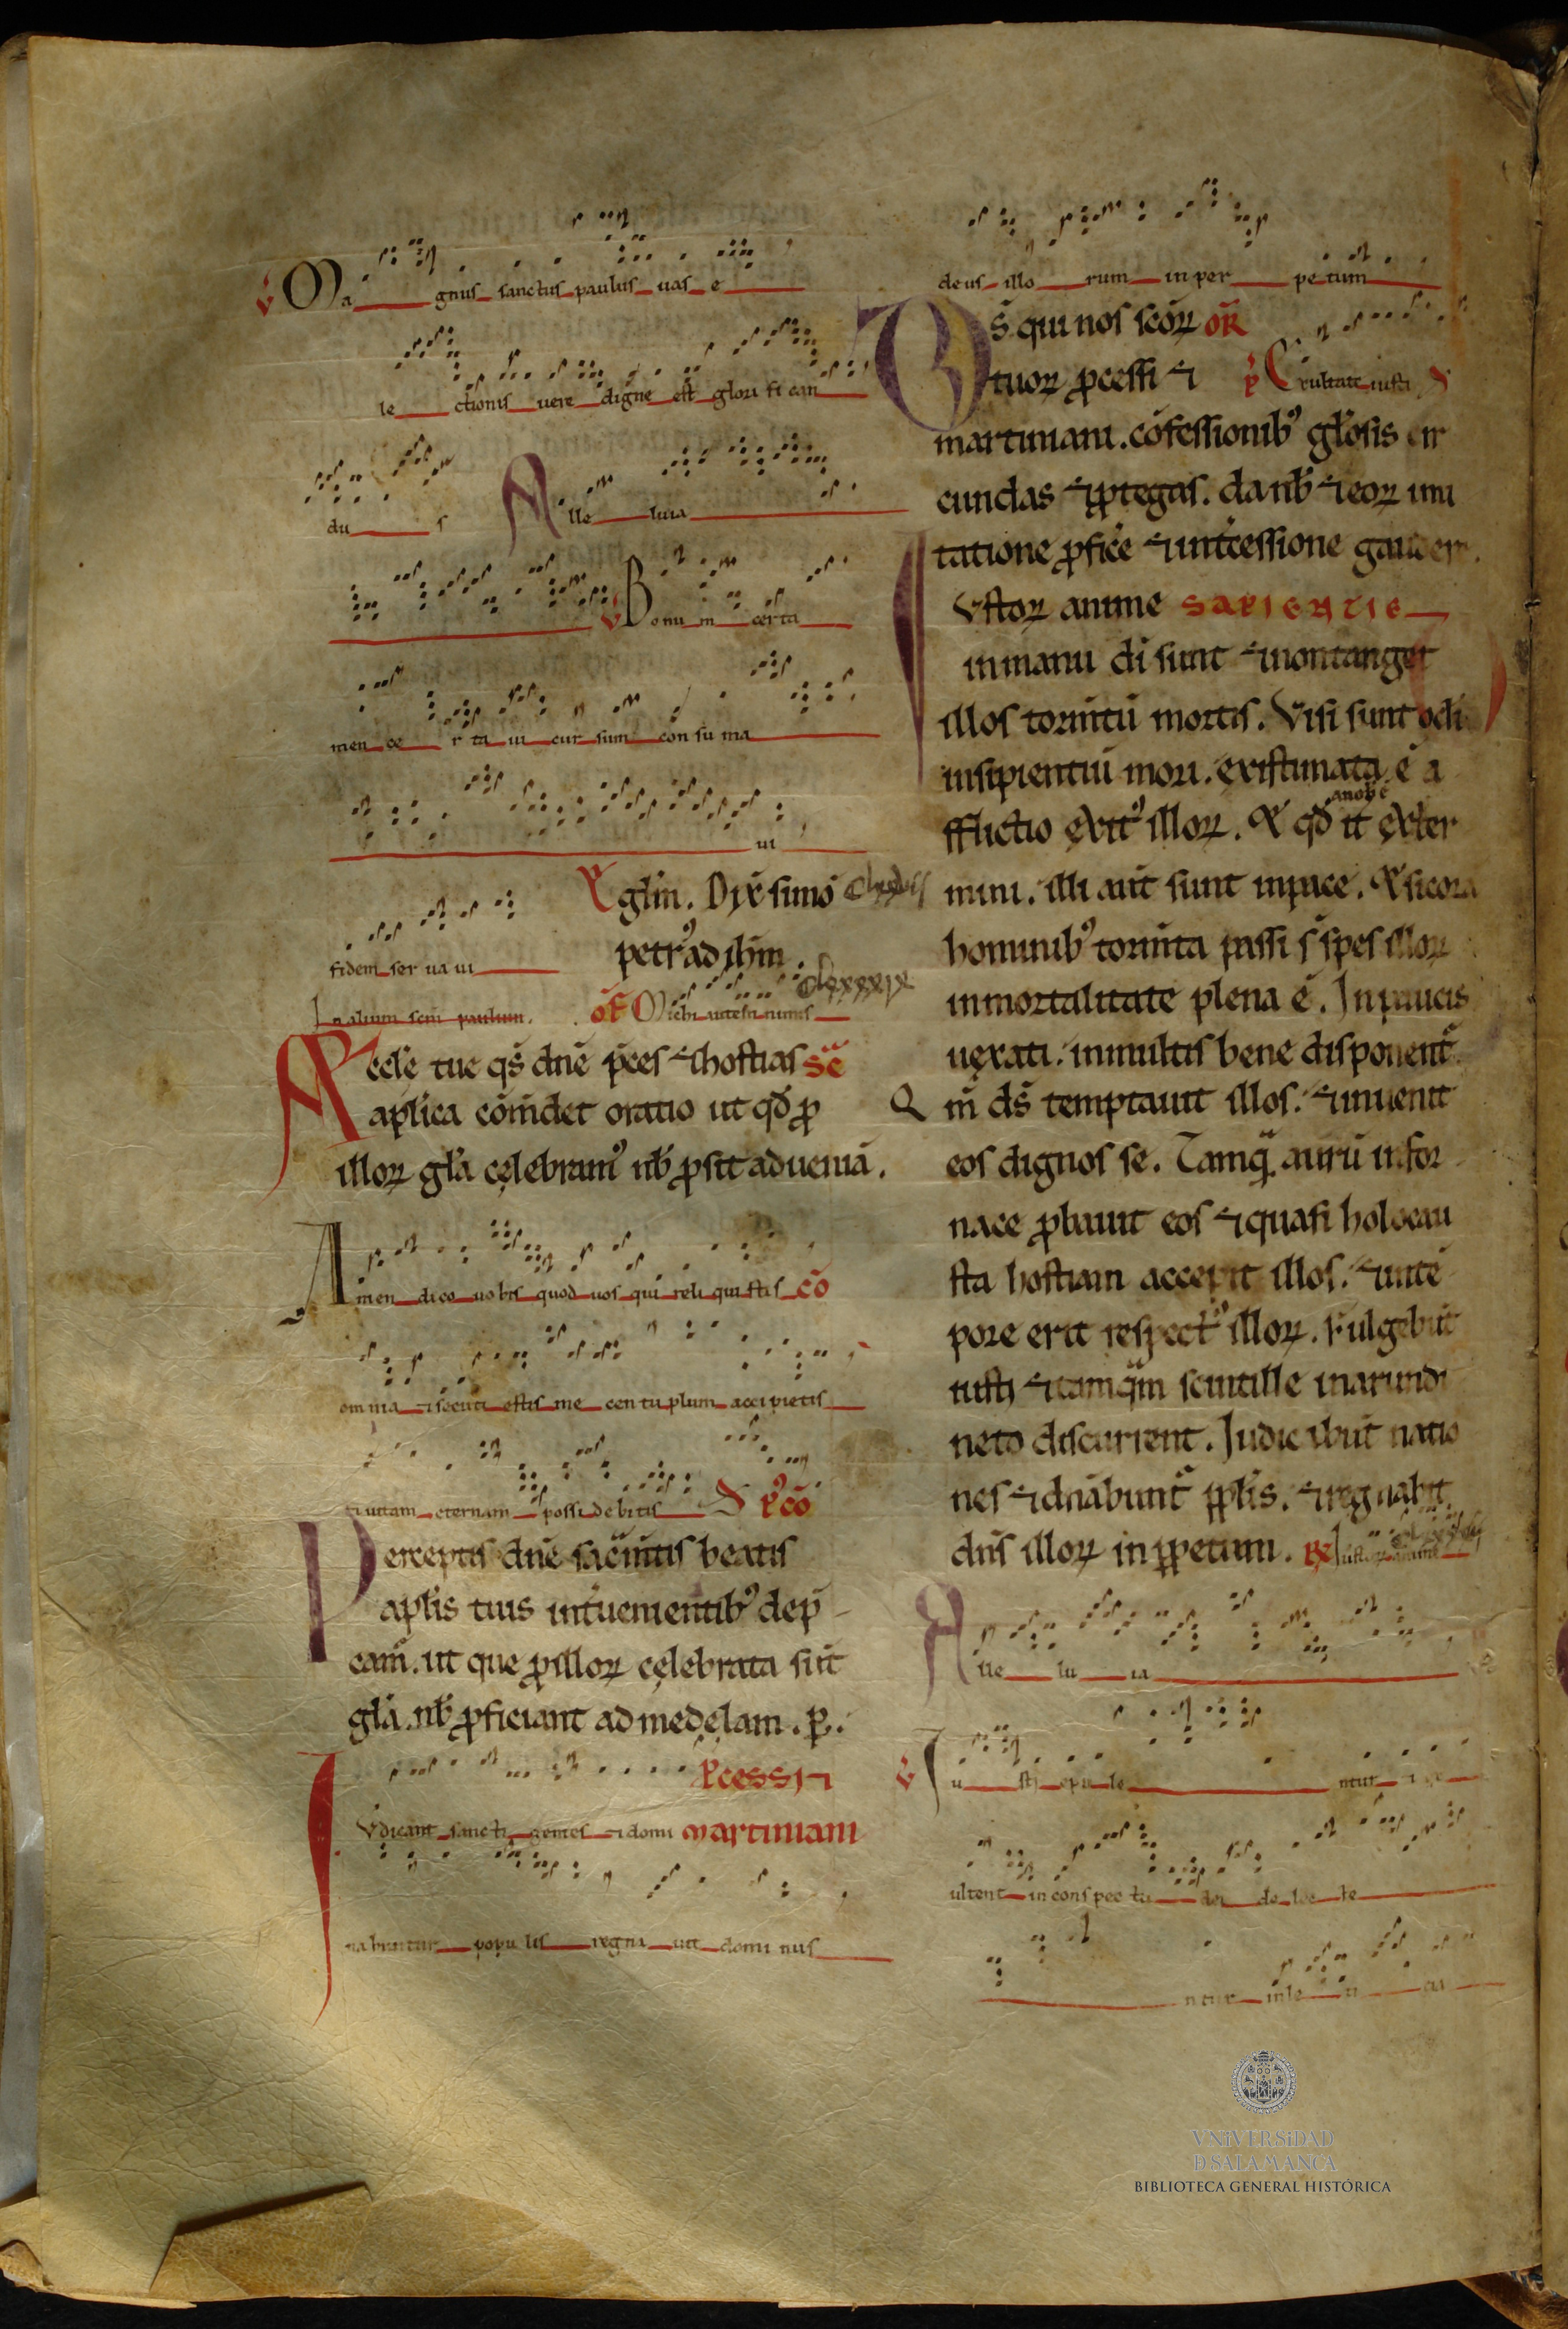 V Ma gnus sanctus paulus uas e
le ctionis uere digne est glori fi can
du s Alle luia
V Bonum certa
men ce r ta ui cur sum con su ma
ui
fidem ser ua ui
Eugl̄m. Dix̄ simō
petr᾽ ad ihm̄.
In alium sc̄m paulum. OF Michi autem nimis clxxxix
Aecclē tue qs̄ dnē p̄ces ⁊ hostias SĒ
apl̄ica com̄det oratio ut qd̄ ꝓ
illoꝝ gl̄a cęlebram᾽ nb̄ ꝓsit ad ueniā.
Amen dico uobis quod uos qui reli qui stis CŌ
om nia ⁊ secuti estis me cen tu plum acci pietis
⁊ uitam eternam possi de bitis P᾽CŌ
Perceptis dnē sac̄mtis beatis
apl̄is tuis int̄uenientib᾽ dep̄
cam̄. ut que ꝓ illoꝝ cęlebrata sūt
gl̄a. nb̄ ꝓficiant ad medęlam. p̱.
P̄cessi ⁊
Iudicant sancti gentes ⁊ domi martiniani
nabuntur popu lis regna uit domi nus
deus illo rum in per pe tum
D̄s qui nos sc̄oꝝ OR̄
tuoꝝ ꝓcessi ⁊ P Exultate iusti
martiniani. cōfessionib᾽ gl̄osis cir
cundas ⁊ ꝓtegis. da nb̄ ⁊ eoꝝ imi
tatione ꝓfice ⁊ int̄cessione gauder.
Iustoꝝ anime SAPIENTIE
in manu dī sunt ⁊ non tanget
illos torm̄tū mortis. Visi sunt ocłi
insipientiū mori. existimata ē a
fflictio exit᾽ illoꝝ. Et qd̄ a nob̄ ē it̄ exter
mini. illi aut̄ sunt in pace. Et si cora
hominib᾽ torm̄ta passi s̄ spes illoꝝ
inmortalitate plena ē. In paucis
uęxati. in multis bene disponent᾽.
Qm̄ ds̄ temptauit illos. ⁊ inuenit
eos dignos se. Tamq̄ aurū in for
nace ꝓbauit eos ⁊ quasi holocau
sta hostiam accepit illos. ⁊ in tē
pore erit respect᾽ illoꝝ. Fulgebūt
iusti ⁊ tamq̄m scintille in arundi
neto discurrent. Iudicabūt natio
nes ⁊ dn̄abunt᾽ ppl̄is. ⁊ regnabit
dn̄s illoꝝ in ꝑpetum. R Iustoꝝ anime
Alle lu ia
V Iu sti epule ntur ⁊ ex
ultent in conspec tu dei de lec te
ntur in le ti cia
VNiVERSiDAD
D SALAMANCA
BIBLIOTECA GENERAL HISTÓRICA